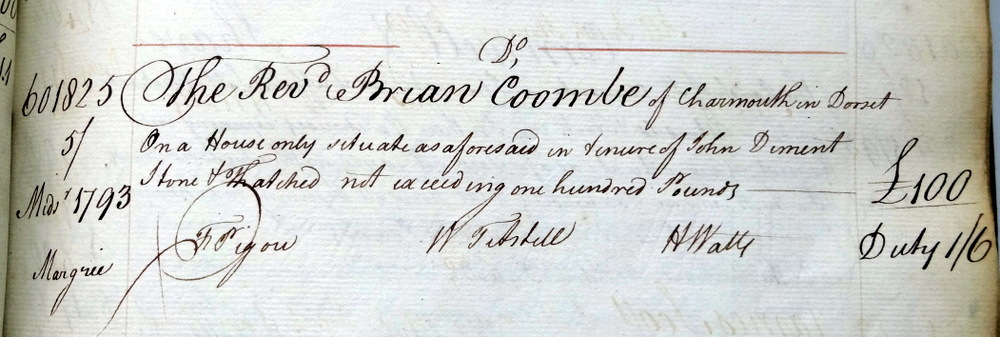 Do,
601825 The Revd Brian Coombe of Charmouth in Dorset
5/ On a House only situate as aforesaid in tenure of John Diment
Midsr 1793 Stone & Thatched not exceeding one hundred Pounds £100
F Pigou W H Watts Duty 1/6
Margrie